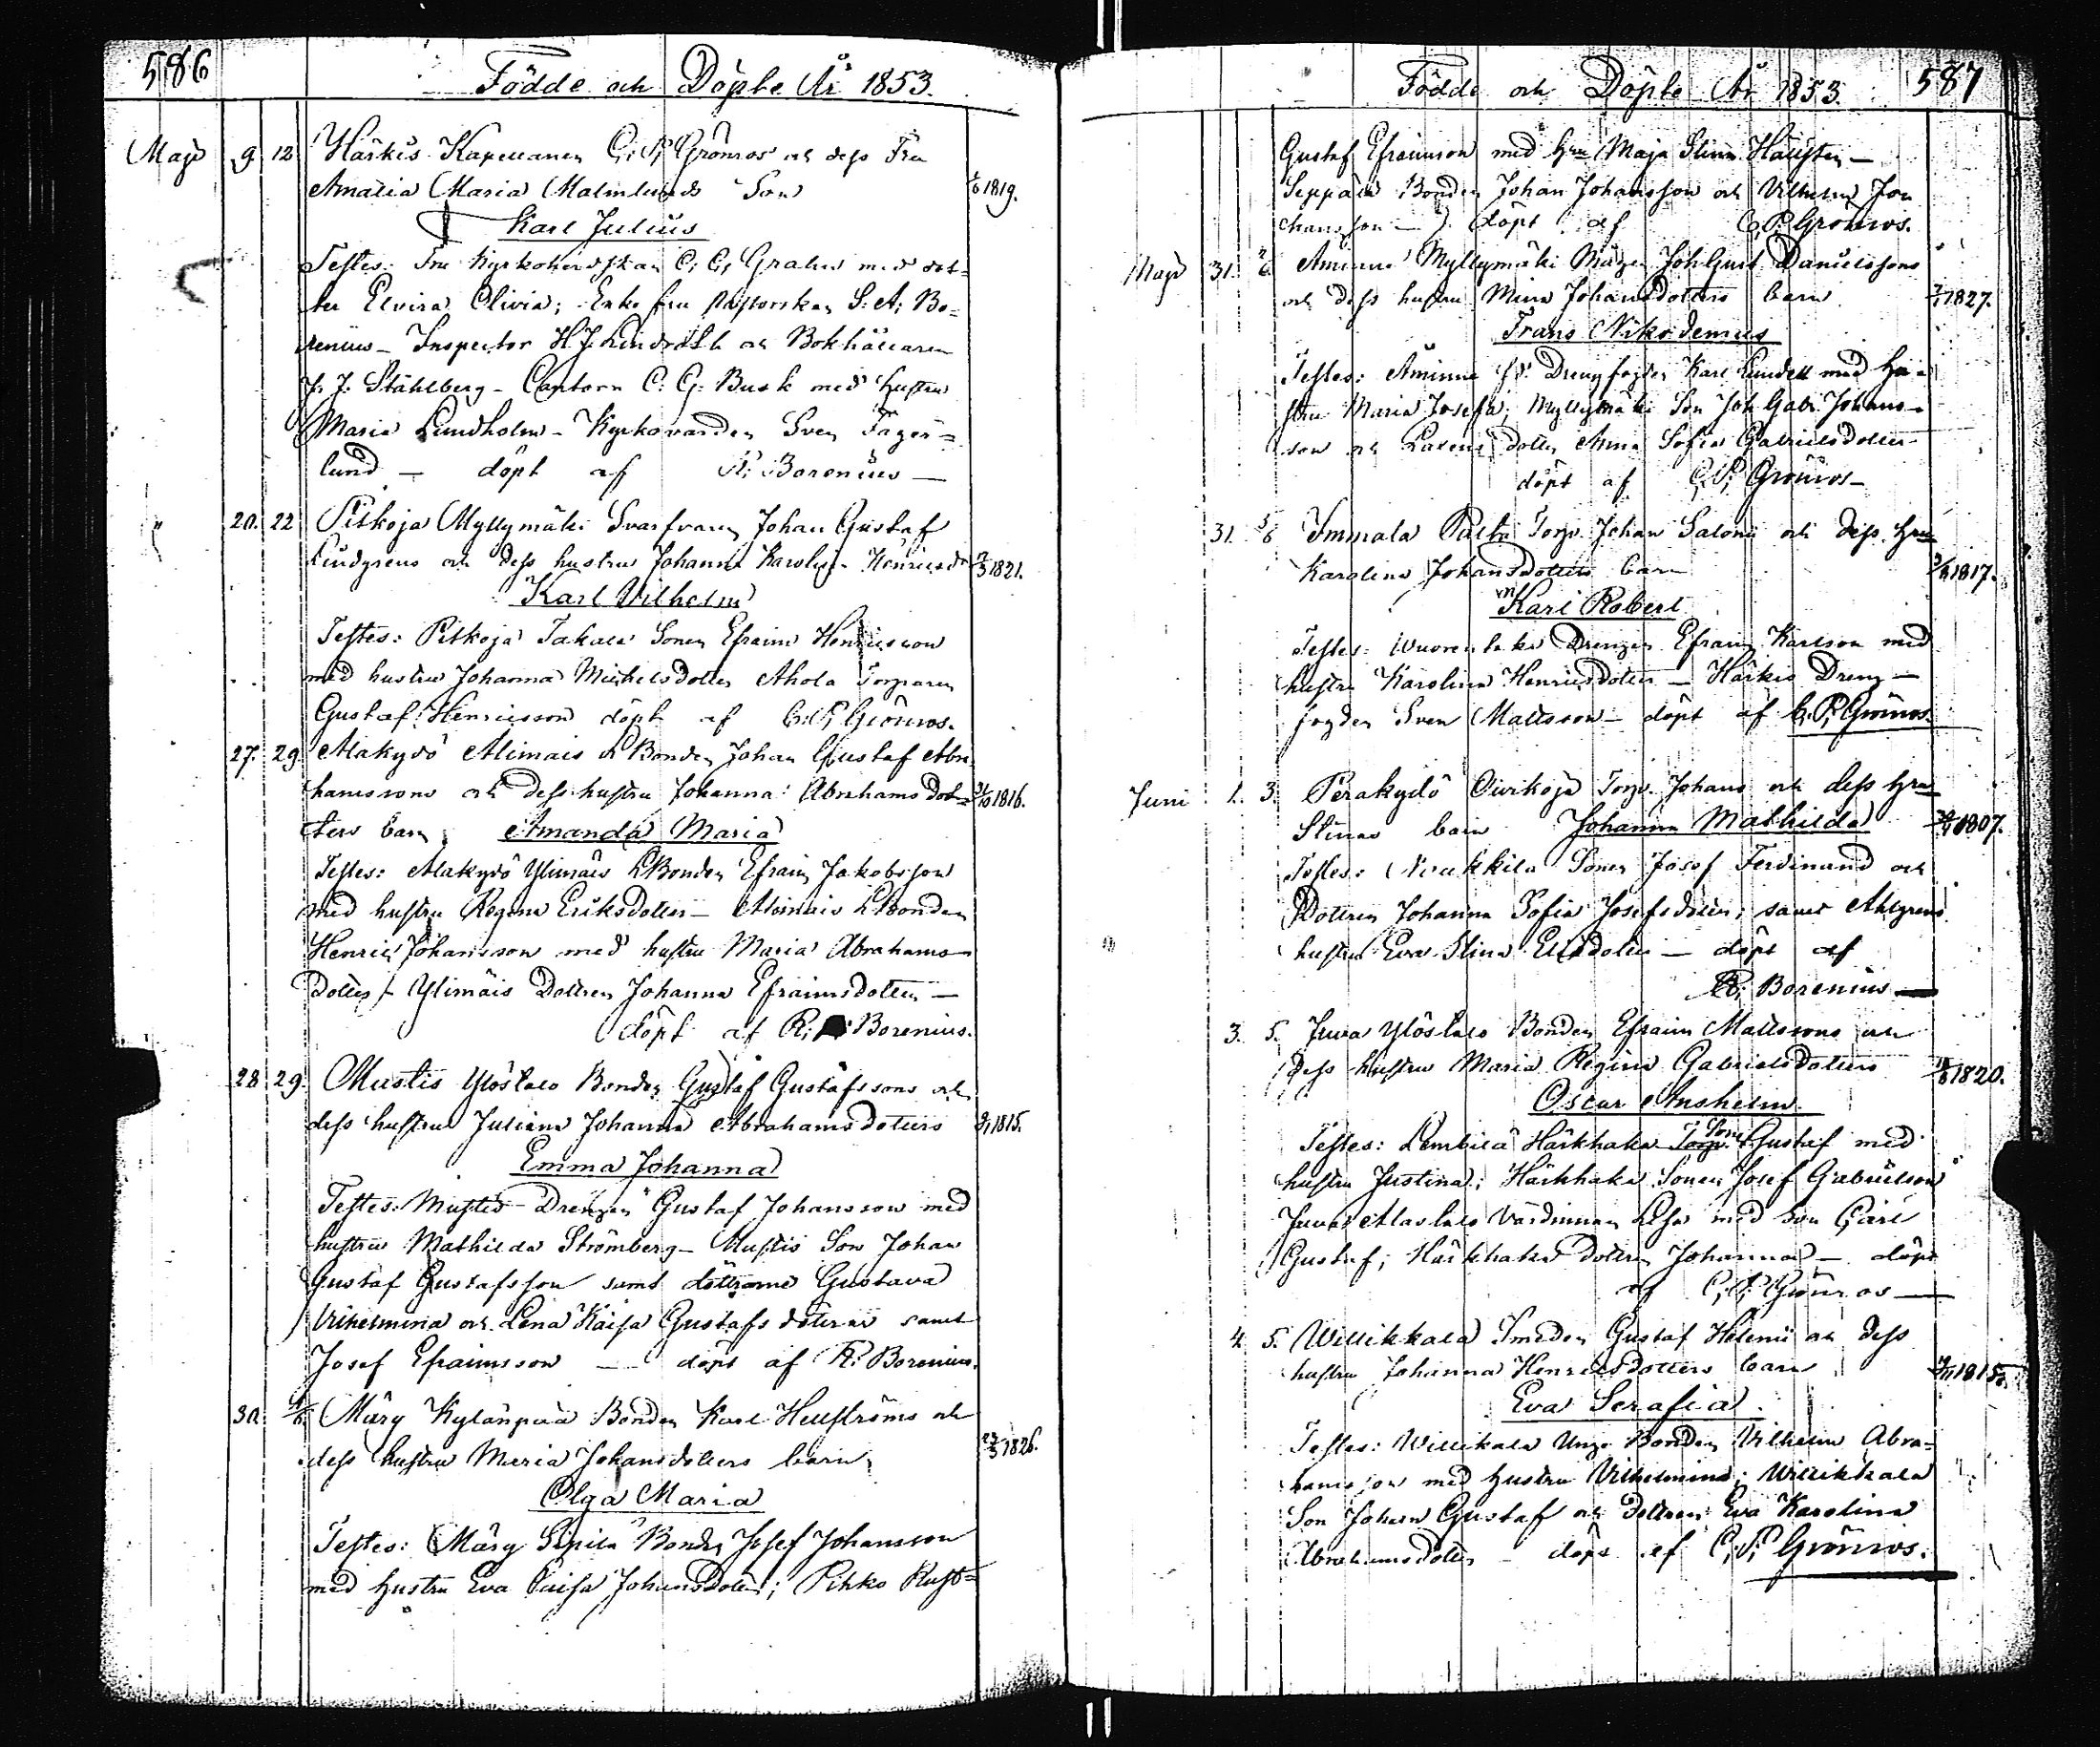 586
Födde och Döpte År 1853.
Maji 9 12 Härkis Kapellanen C. P. Grönros och dess Fru
Amalia Maria Malmlunds Son 1819.
Karl Julius
Testes: Fru Kyrkoherdskan C. C. Grahn med dot-
ter Elvira Olivia; Enke fru Pastorskan S. A. Bo-
renius - Inspector H J. Lindroth och Bokhållaren
J. J. Ståhlberg - Cantorn C. G. Busk med hustru
Maria Lundholm - Kyrkovärden Sven Fager=
lund - döpt af R. Borenius -
20. 22 Pitkoja Myllymäki Svarfvaren Johan Gustaf
Lindgrens och dess hustru Johanna Karolina Henricsdr 1821.
Karl Vilhelm
Testes: Pitkoja Takala Sonen Efraim Henricsson
med hustru Johanna Michelsdotter Ahola Torparen
Gustaf Henricsson döpt af C. P. Grönros.
27. 29. Alakydö Alimais LBonden Johan Gustaf Abra
hamssons och dess hustru Johanna Abrahams Dot= 1816.
ters barn Amanda Maria
Testes: Alakydö Ylimäis LBonden Efraim Jakobsson
med hustru Regina Eriksdotter - Alimais LBonden
Henric Johansson med hustru Maria Abrahams
dotter - Ylimäis Dottren Johanna Efraimsdotter -
döpt af R. Borenius.
28 29. Mustis Ylöstalo Bonden Gustaf Gustafssons och
dess hustru Juliana Johanna Abrahamsdotters 1815.
Emma Johanna
Testes: Mustis Drengen Gustaf Johansson med
hustru Mathilda Strömberg - Mustis Son Johan
Gustaf Gustafsson samt döttrarne Gustava
Vilhelmina och Lena Kaisa Gustafs döttrar samt
Josef Efraimsson - döpt af R. Borenius.
30. Märy Kylänpää Bonden Karl Hellströms och
dess hustru Maria Johansdotters barn 1826.
Olga Maria
Testes: Märy Sipilä Bonden Josef Johansson
med hustru Eva Caisa Johansdotter; Pihko Rust=
587
Födde och Döpte År 1853.
Gustaf Efraimson med hru Maja Stina Hällsten -
Seppälä Bonden Johan Johansson och Vilhelm Jo
hansson - döpt af C. P. Grönros.
Maji 31. Åminne Myllymäki Joh Gust Danielssons
och dess hustru Mina Johansdotters barn 1827.
Frans Nikodemus
Testes: Åminne f.d. Drengfogden Karl Lundell med hu-
stru Maria Josefa, Myllymäki Son Joh Gabr Johans-
son och dotter Anna Sofia Gabrielsdotter
döpt af C. P. Grönros -
31. Immala Torp. Johan Salonii och dess hru
Karolina Johansdotters barn 1817.
Karl Robert
Testes: Wuorentaka Drengen Efraim Karlson med
hustru Karolina Henricsdotter - Härkis Dreng-
fogden Sven Mattsson - döpt af C. P. Grönros.
Juni 1. 3. Perakydö Oivikoja Torp. Johans och dess hru
Stinas barn Johanna Mathilda 1807.
Testes: Noukkila Sonen Josef Ferdinand och
Dottren Johanna Sofia Josefsdotter, samt Ahlgrens
hustru Eva Stina - döpt af
R. Borenius -
3. 5. Juva Ylöstalo Bonden Efraim Mattssons och
dess hustru Maria Regina Gabrielsdotters 1820.
Oscar Anshelm
Testes: Lembilä Härkhaka Sonen Gustaf med
hustru Justina; Härkhaka Sonen Josef Gabrielson
Juva Alastalo Värdinnan Lisa med Son Carl
Gustaf; Härkhaka dottren Johanna - döpt
af C. P. Grönros -
4. 5. Willikkala Smeden Gustaf Helenii och dess
hustru Johanna Henricsdotters barn 1815.
Eva Serafia
Testes: Willikala Unge Bonden Vilhelm Abra=
hamsson med hustru Vilhelmina; Willikkala
Son Johan Gustaf och dottren Eva Karolina
Abrahamsdotter - döpt af C. P. Grönros.